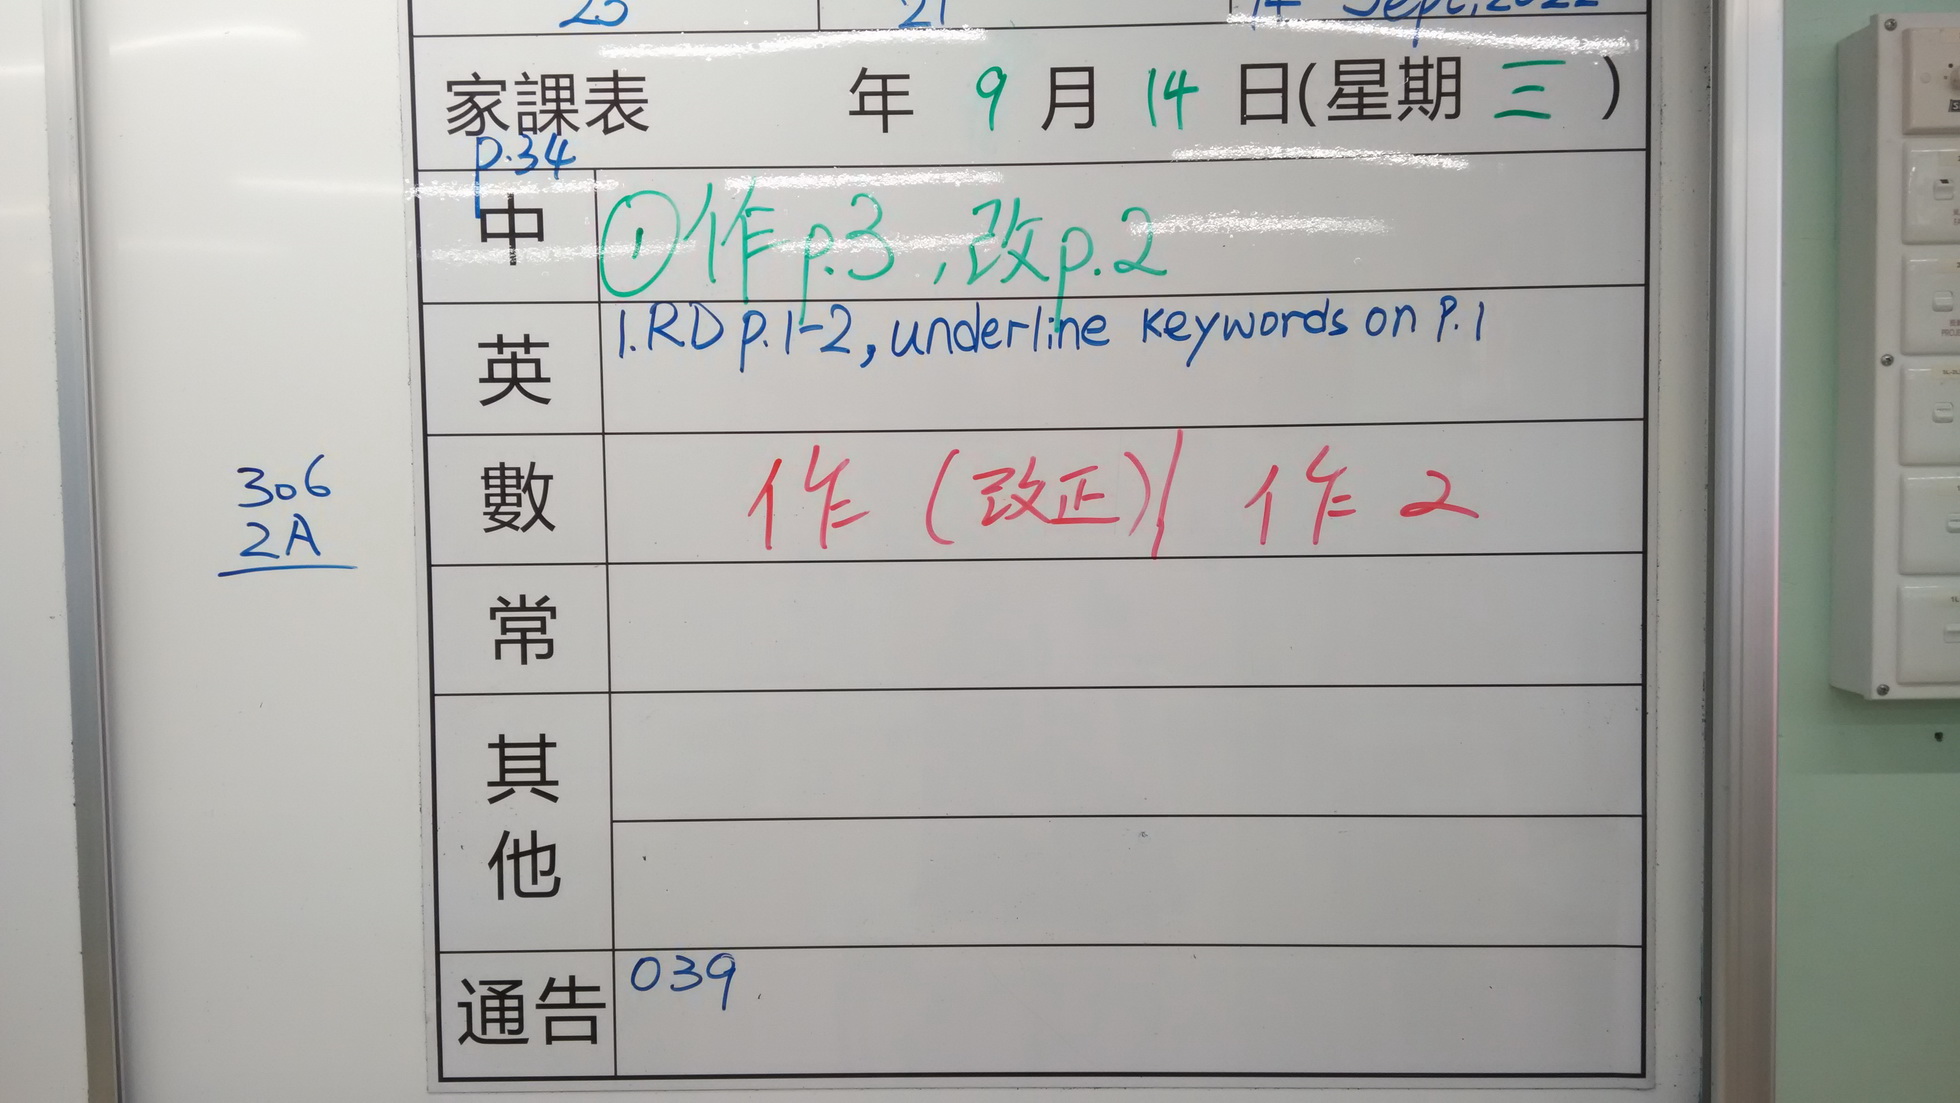 23 21 14 Sept, 2022
家課表 年 9 月 14 日(星期 三 )
p.34
中 ①作p.3,改p.2
英 1.RD p.1-2, underline keywords on p.1
306
2A
數 作(改正)1 作 2
常
其他
通告 039